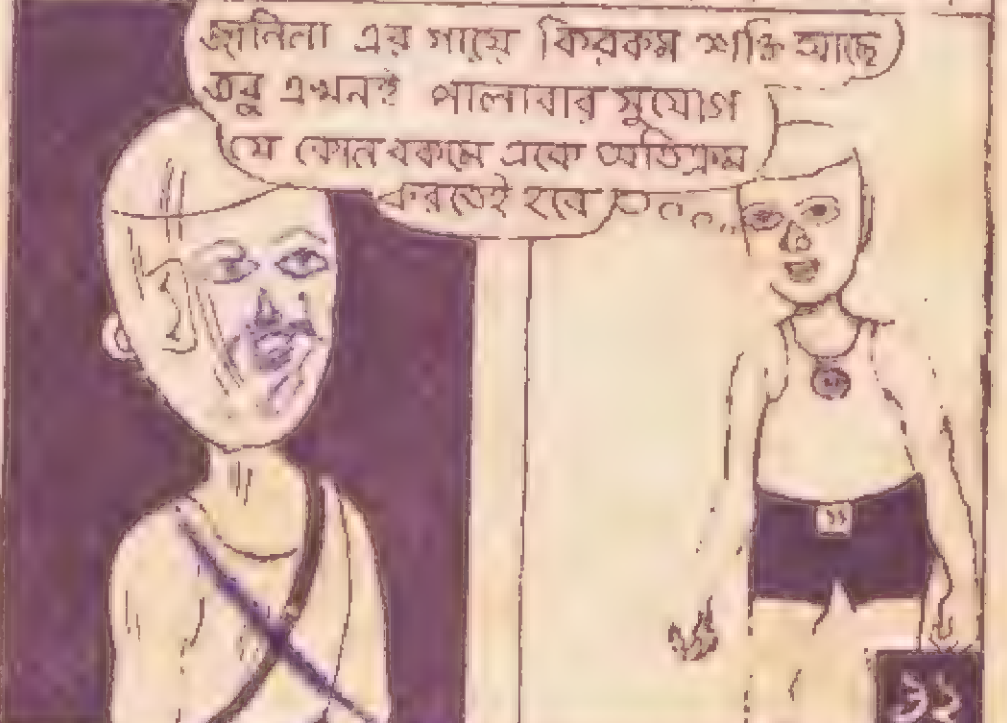 জানিনা এর গায়ে কিরকম শক্তি আছে
তবু এখনই পালাবার সুযোগ
যে কোন রকমে একে অতিক্রম
করতেই হবে
৩১